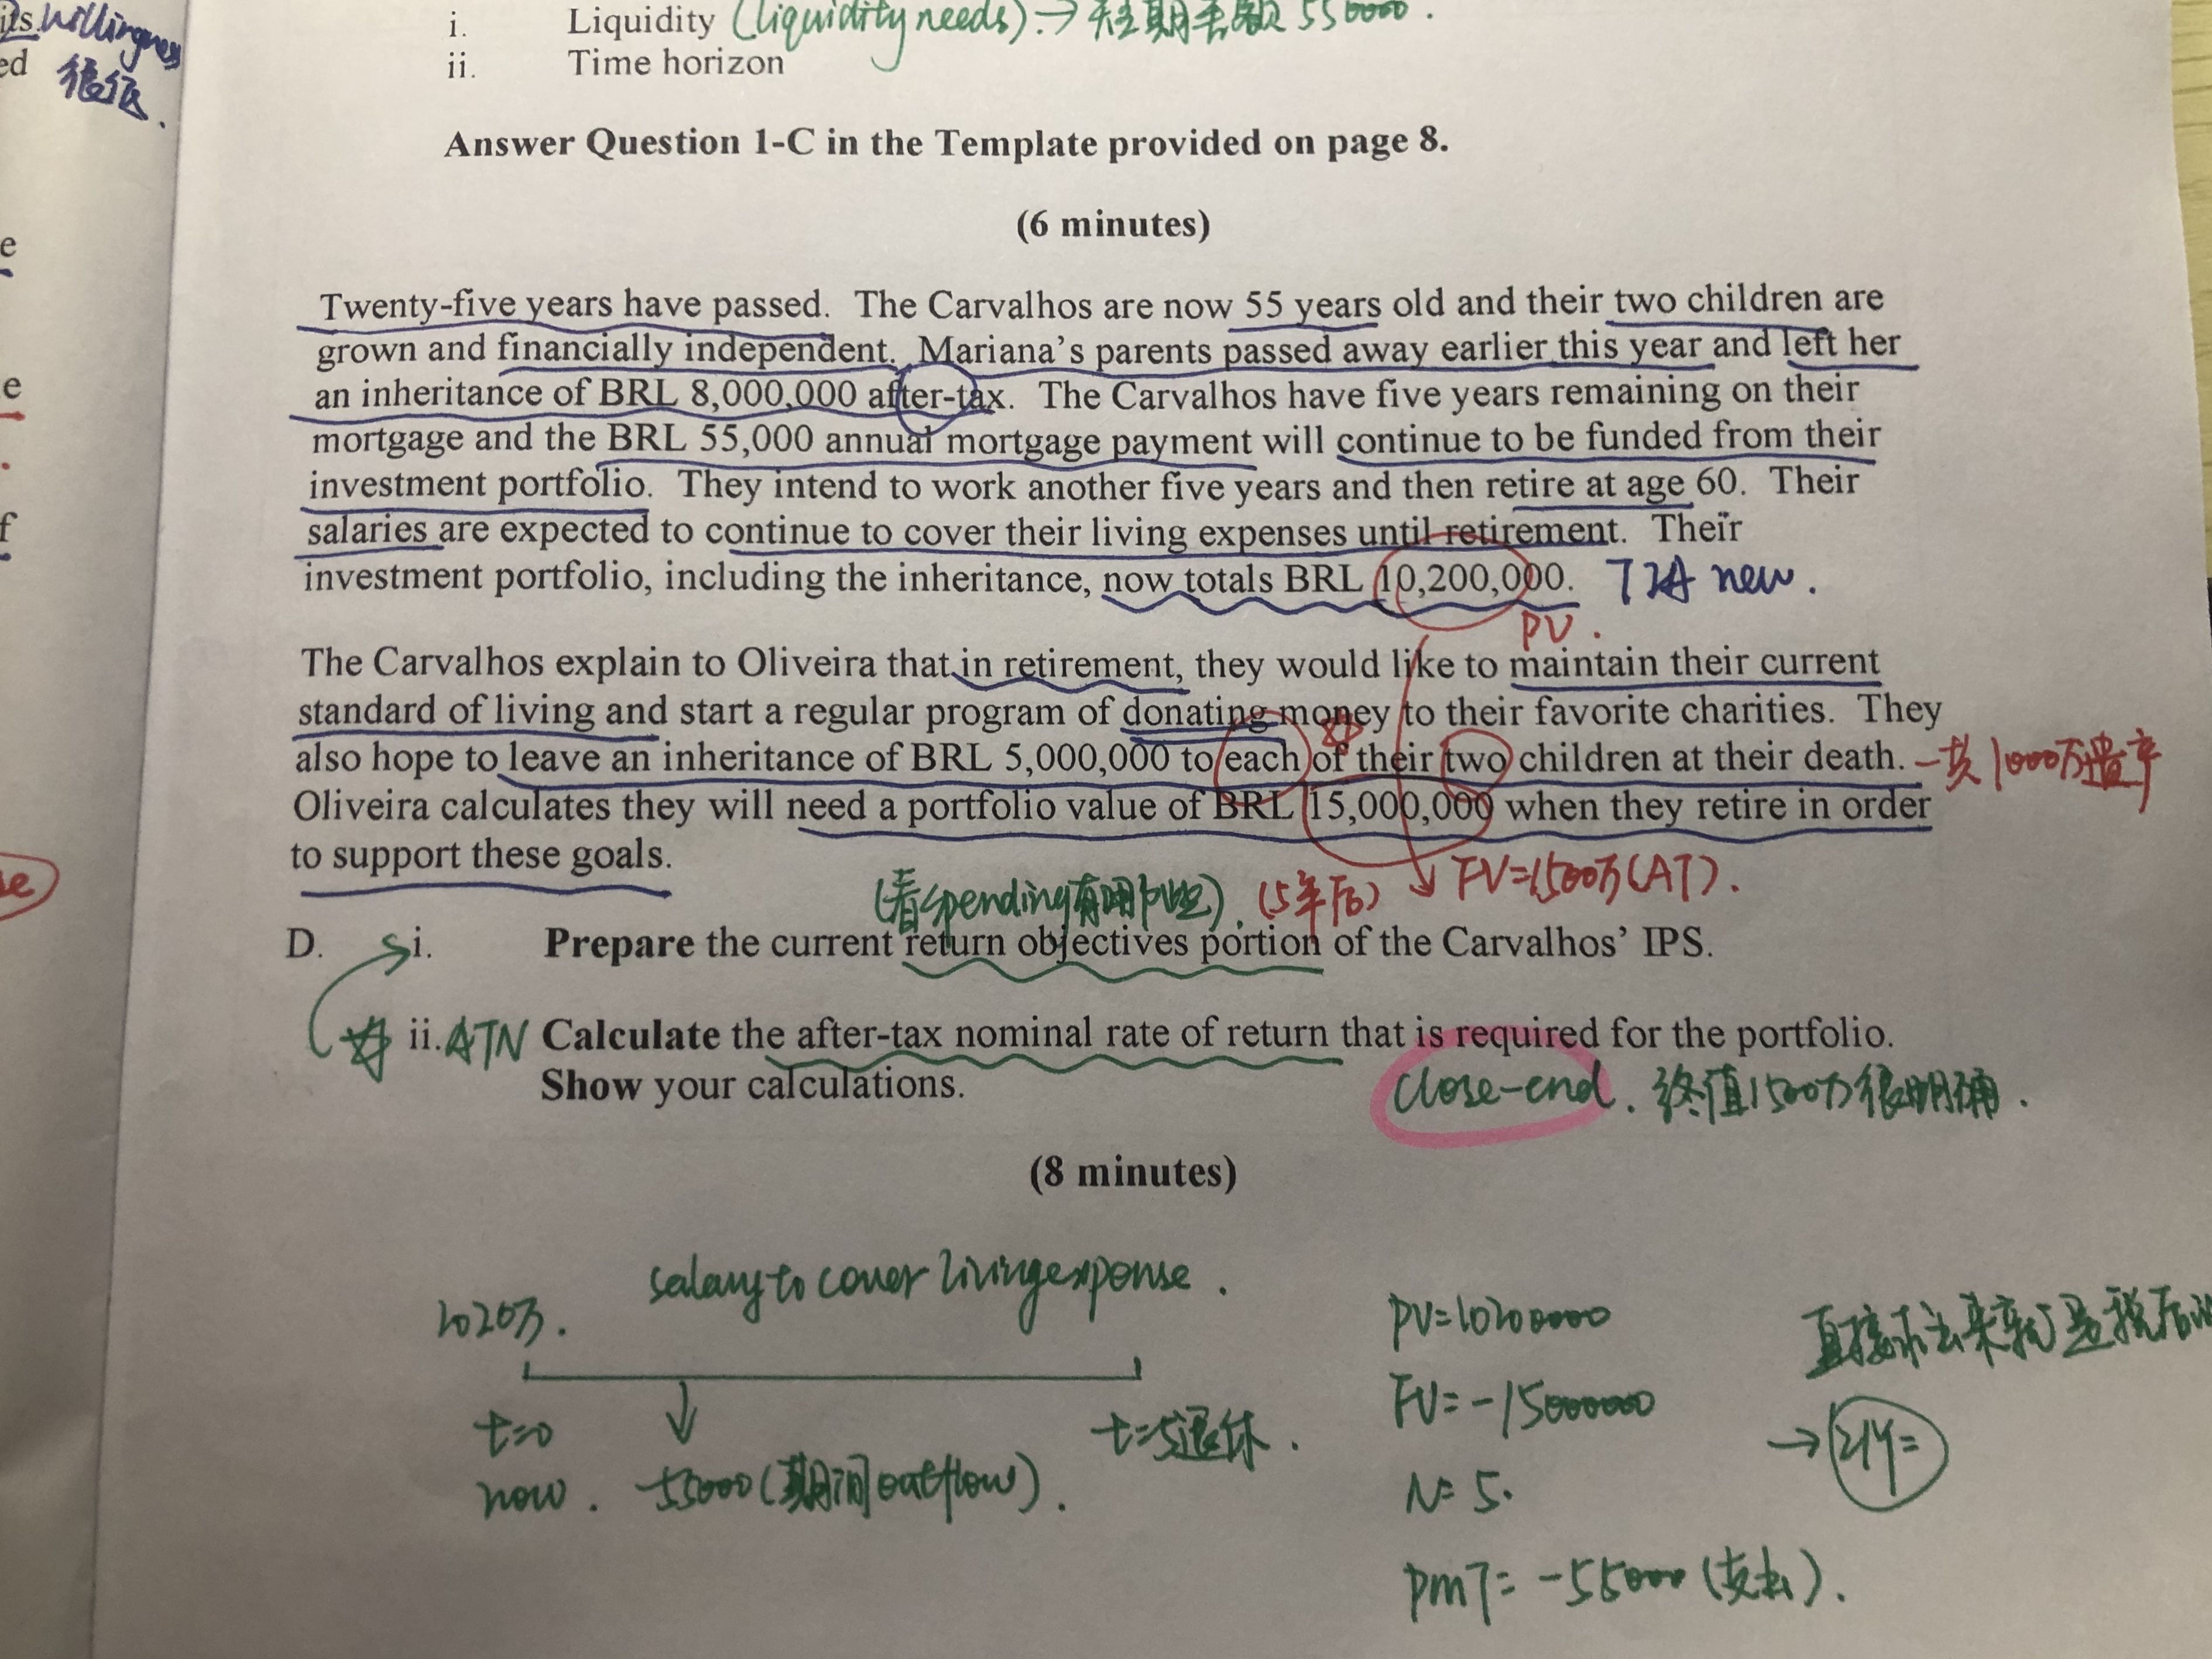 its willingness
ed 很低.
i. Liquidity (liquidity needs). → 550000.
ii. Time horizon
Answer Question 1-C in the Template provided on page 8.
(6 minutes)
e
Twenty-five years have passed. The Carvalhos are now 55 years old and their two children are
grown and financially independent. Mariana's parents passed away earlier this year and left her
e
an inheritance of BRL 8,000,000 after-tax. The Carvalhos have five years remaining on their
mortgage and the BRL 55,000 annual mortgage payment will continue to be funded from their
investment portfolio. They intend to work another five years and then retire at age 60. Their
f
salaries are expected to continue to cover their living expenses until retirement. Their
investment portfolio, including the inheritance, now totals BRL 10,200,000. new.
PV.
The Carvalhos explain to Oliveira that in retirement, they would like to maintain their current
standard of living and start a regular program of donating money to their favorite charities. They
also hope to leave an inheritance of BRL 5,000,000 to each of their two children at their death. 一共1000万遗产
Oliveira calculates they will need a portfolio value of BRL 15,000,000 when they retire in order
to support these goals.
se
(看spending有哪些). (5年后) FV=1500万(AT).
D. i. Prepare the current return objectives portion of the Carvalhos' IPS.
ii. ATN Calculate the after-tax nominal rate of return that is required for the portfolio.
Show your calculations.
close-end. 终值1500万很明确.
(8 minutes)
salary to cover living expense.
1020万.
PV=10200000
直接求出来就是税后
FV=-15000000
t=0
t=5退休.
→ I/Y=
now. -55000(期间outflow).
N=5.
PMT=-55000(支出).